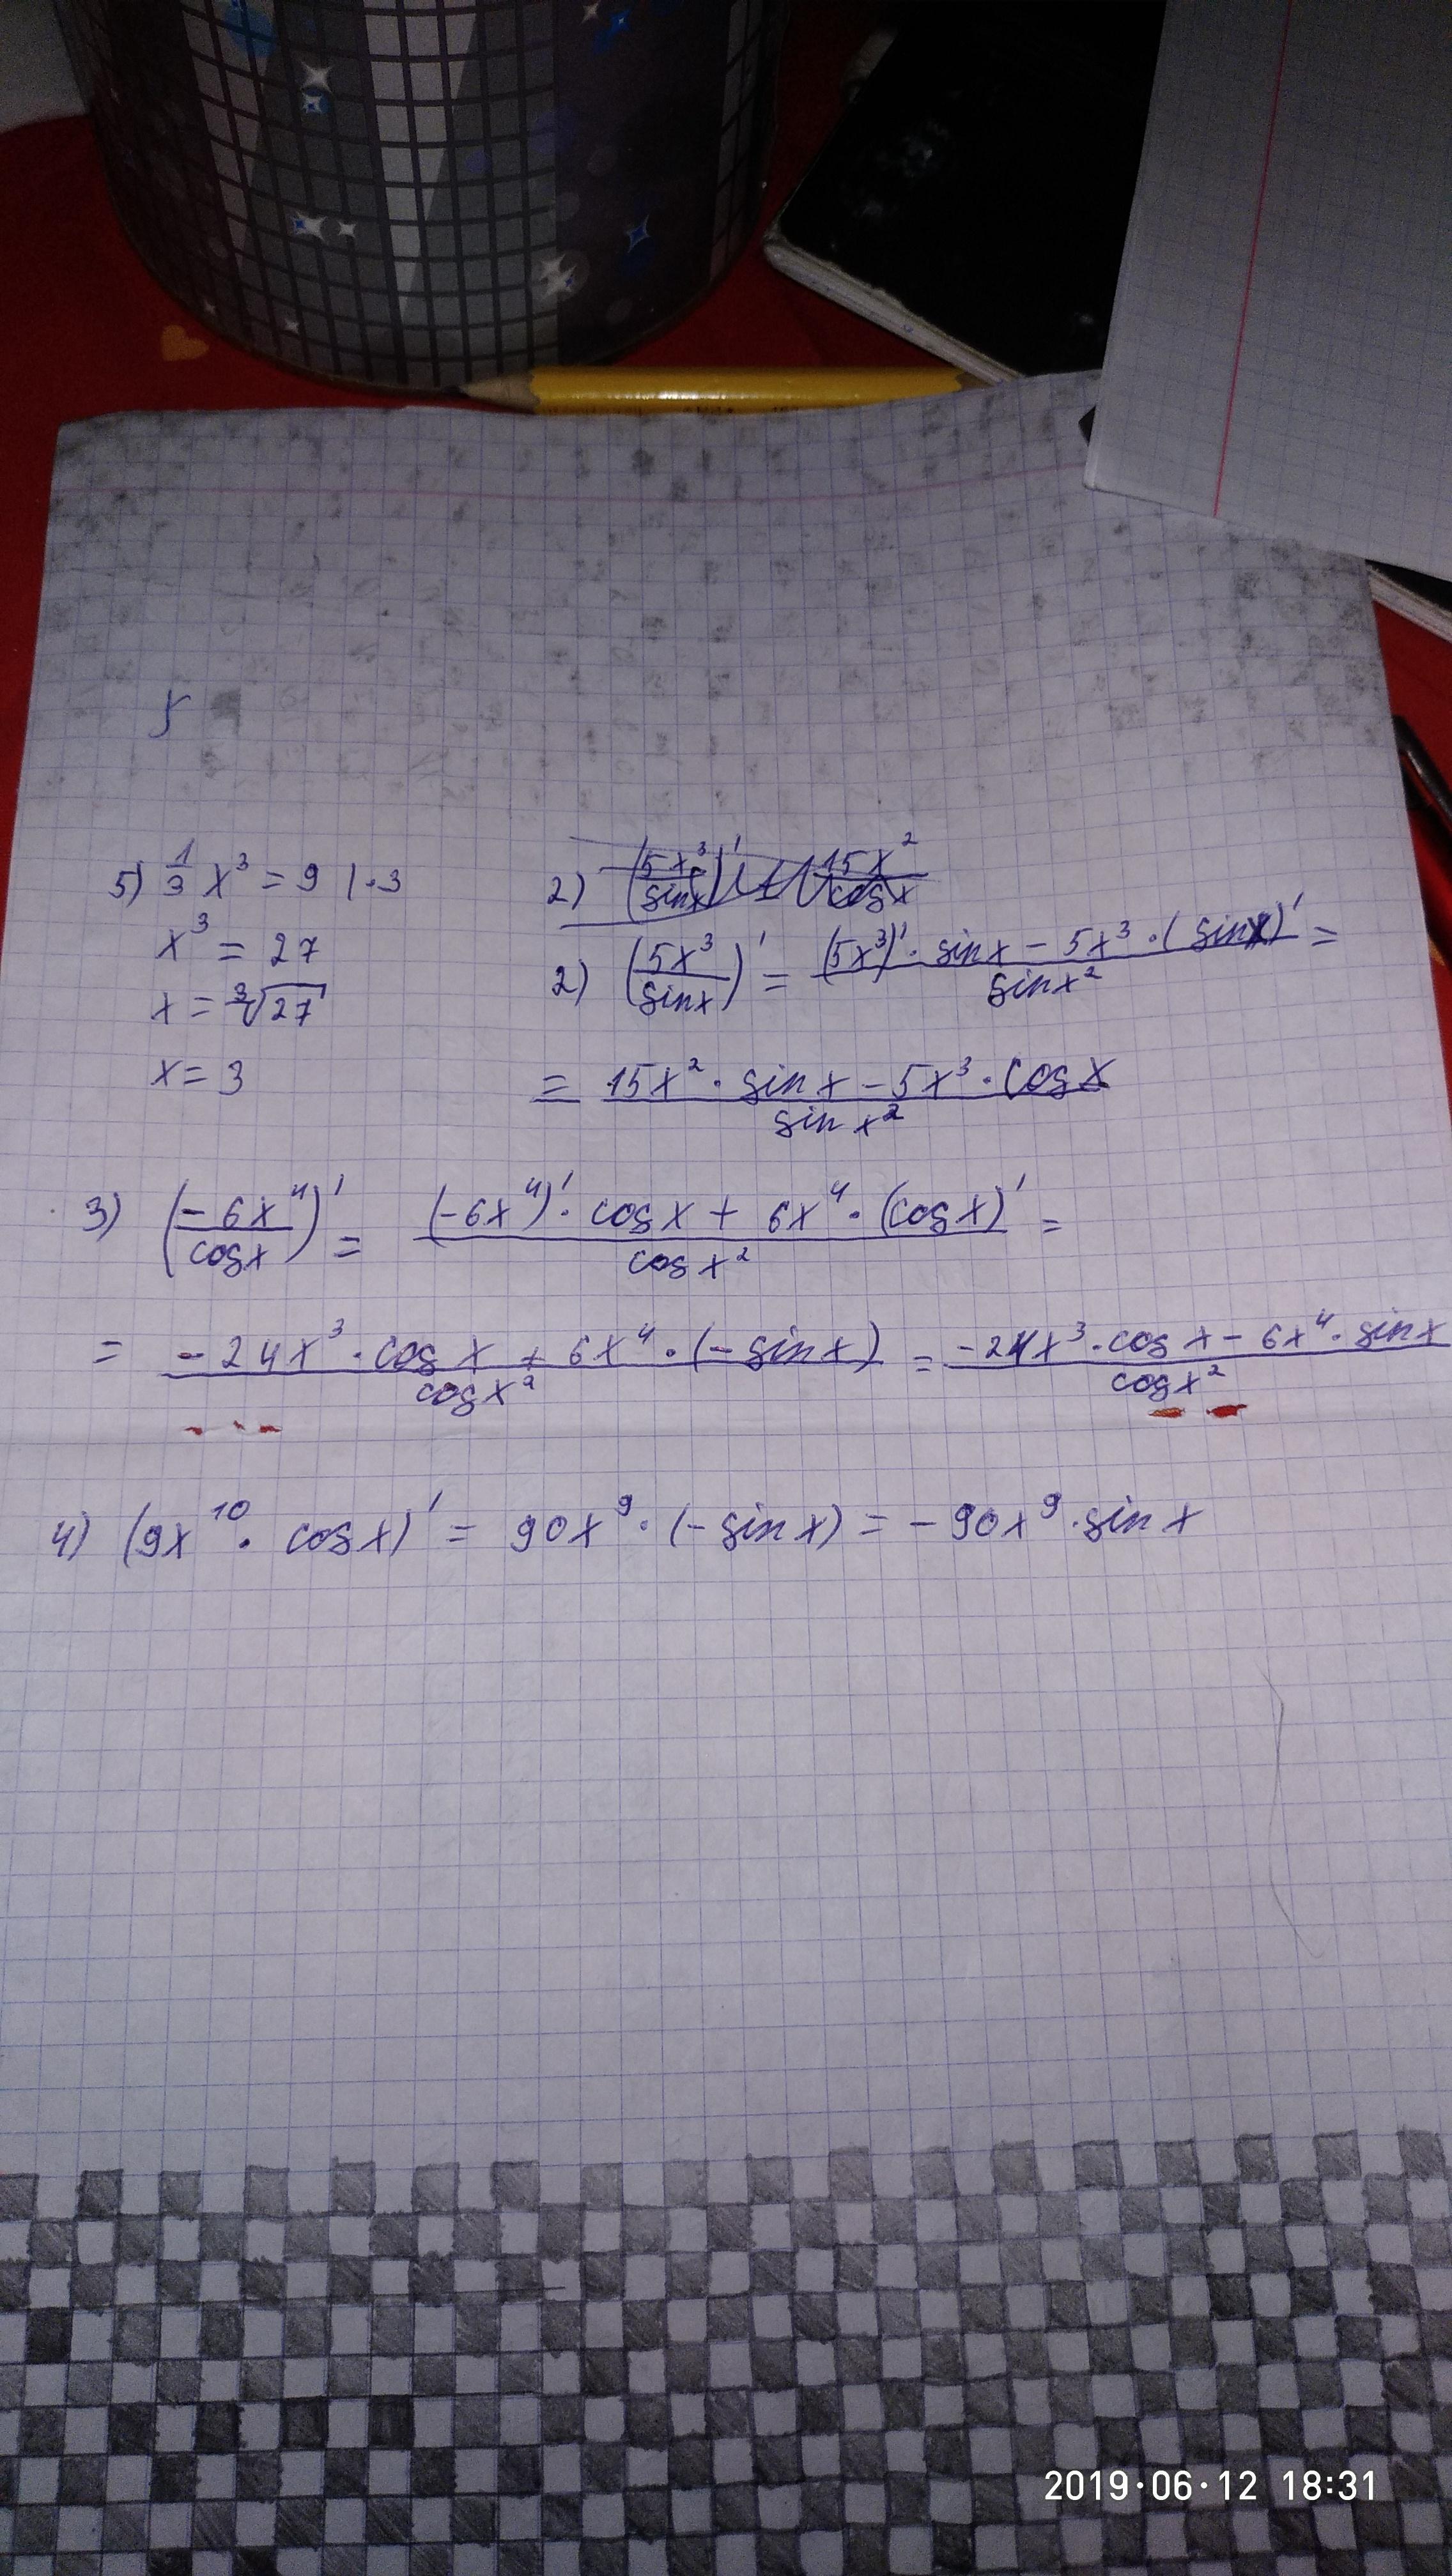 5) 1/3 x³ = 9 | · 3
x³ = 27
x = ³√27
x = 3
2) (5x³/sinx)' = 15x²/cosx
2) (5x³/sinx)' = ((5x³)' · sinx − 5x³ · (sinx)')/sinx² =
= (15x² · sinx − 5x³ · cosx)/sinx²
3) (−6x⁴/cosx)' = ((−6x⁴)' · cosx + 6x⁴ · (cosx)')/cosx² =
= (−24x³ · cosx + 6x⁴ · (−sinx))/cosx² = (−24x³ · cosx − 6x⁴ · sinx)/cosx²
4) (9x¹⁰ · cosx)' = 90x⁹ · (−sinx) = −90x⁹ · sinx
2019·06·12 18:31